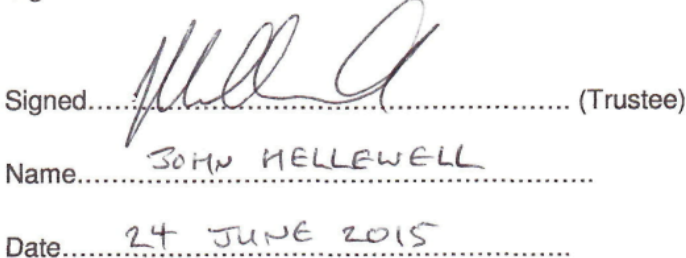 Signed.................................................. (Trustee)
Name.... JOHN HELLEWELL ....................
Date...... 24 JUNE 2015 ....................